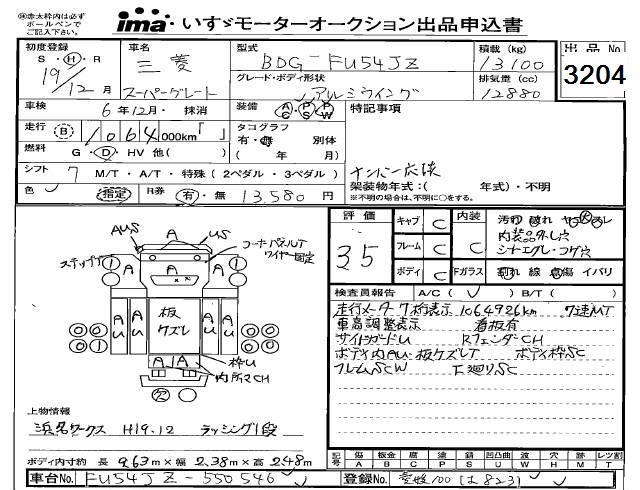 ㊟赤太枠内は必ず
ボールペンで
ご記入下さい。
ima いすゞモーターオークション出品申込書
初度登録 車名 型式 積載 (kg) 出品No
S・H・R 三菱 BDG-FU54JZ 13100
19/12月 スーパーグレート グレード・ボディ形状 排気量 (cc) 3204
アルミウイング 12880
車検 6年12月・抹消 装備 AC PS PW 特記事項
走行 B 1064 000km「 」 タコグラフ
有・無 別体
燃料 G・D・HV 他( ) ( 年 月)
シフト 7 M/T・A/T・特殊(2ペダル・3ペダル) 架装物年式:( 年式)・不明
色 指定 R券 有・無 13,580円 ※不明の場合は、不明に○をする。
評価 キャブ C 内装 C 汚れ
35 フレーム C 内装品外し穴
シートエグレ・コゲ穴
ボディ C Fガラス 割れ 線 傷 イバリ
AUS US コーナーパネルUT
ワイヤー固定
ステップ
A A A
A A
AU AU 板ケズレ AU AU
A A 枠U
内所々CH
欠
検査員報告 A/C( ) B/T( )
走行メーター7桁表示 1064926km 7速MT
車高調整表示 看板有
サイドガードU RフェンダーCH
ボディ内AU・板ケズレT ボディ枠SC
フレムSCW 下廻りSC
上物情報
浜名ワークス H19.12 ラッシング1段
ボディ内寸約 長 9.63m×幅 2.38m×高 2.48m
記号 傷 A 板金 B 腐 C 塗 P 錆 S 凹凸 U 波 W 穴 H 跡 M レツ割 T
車台No. FU54JZ-550546 登録No. 愛媛100 は823